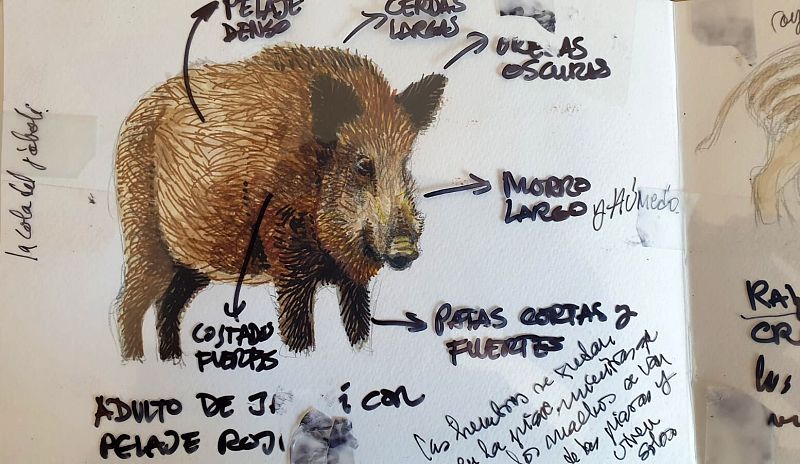 PELAJE
DENSO
CERDAS
LARGAS
OSCURAS
la cola del jabalí
MORRO
LARGO y HÚMEDO.
COSTADO
FUERTES
PATAS CORTAS Y
FUERTES
ADULTO DE CON
PELAJE
Las hembras se quedan
en la piara, mientras que
los machos se van
de las piaras y
viven
solos
los